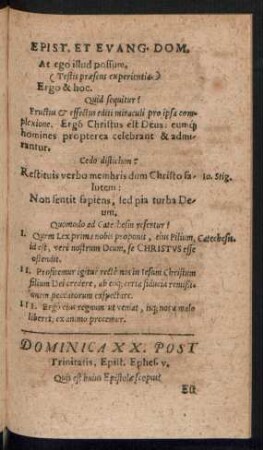 EPIST. ET EVANG. DOM.
At ego illud possum.
(Testis præsens experientia.)
Ergo & hoc.
Quid sequitur?
Fructus & effectus editi miraculi pro ipsa com-
plexione. Ergo Christus est Deus: eumq́;
homines propterea celebrant & admi-
rantur.
Cedo distichum?
Restituis verbo membris dum Christe sa- Io. Stig.
lutem:
Non sentit sapiens, sed pia turba De-
um,
Quomodo ad Catechesin refertur?
I. Quem Lex prima nobis proponit, eius Filium, Catechesis.
id est, verè nostrum Deum, se CHRISTVS esse
ostendit.
II. Profitemur igitur rectè nos in Iesum Christum
filium Dei credere, ab eoq́; certa fiducia remissi-
onem peccatorum expectare.
III. Ergò eius regnum ut veniat, nosq́; à malo
liberet, ex animo precemur.
DOMINICA XX. POST
Trinitatis, Epist. Ephes. v.
Quis est huius Epistolæ scopus?
Est